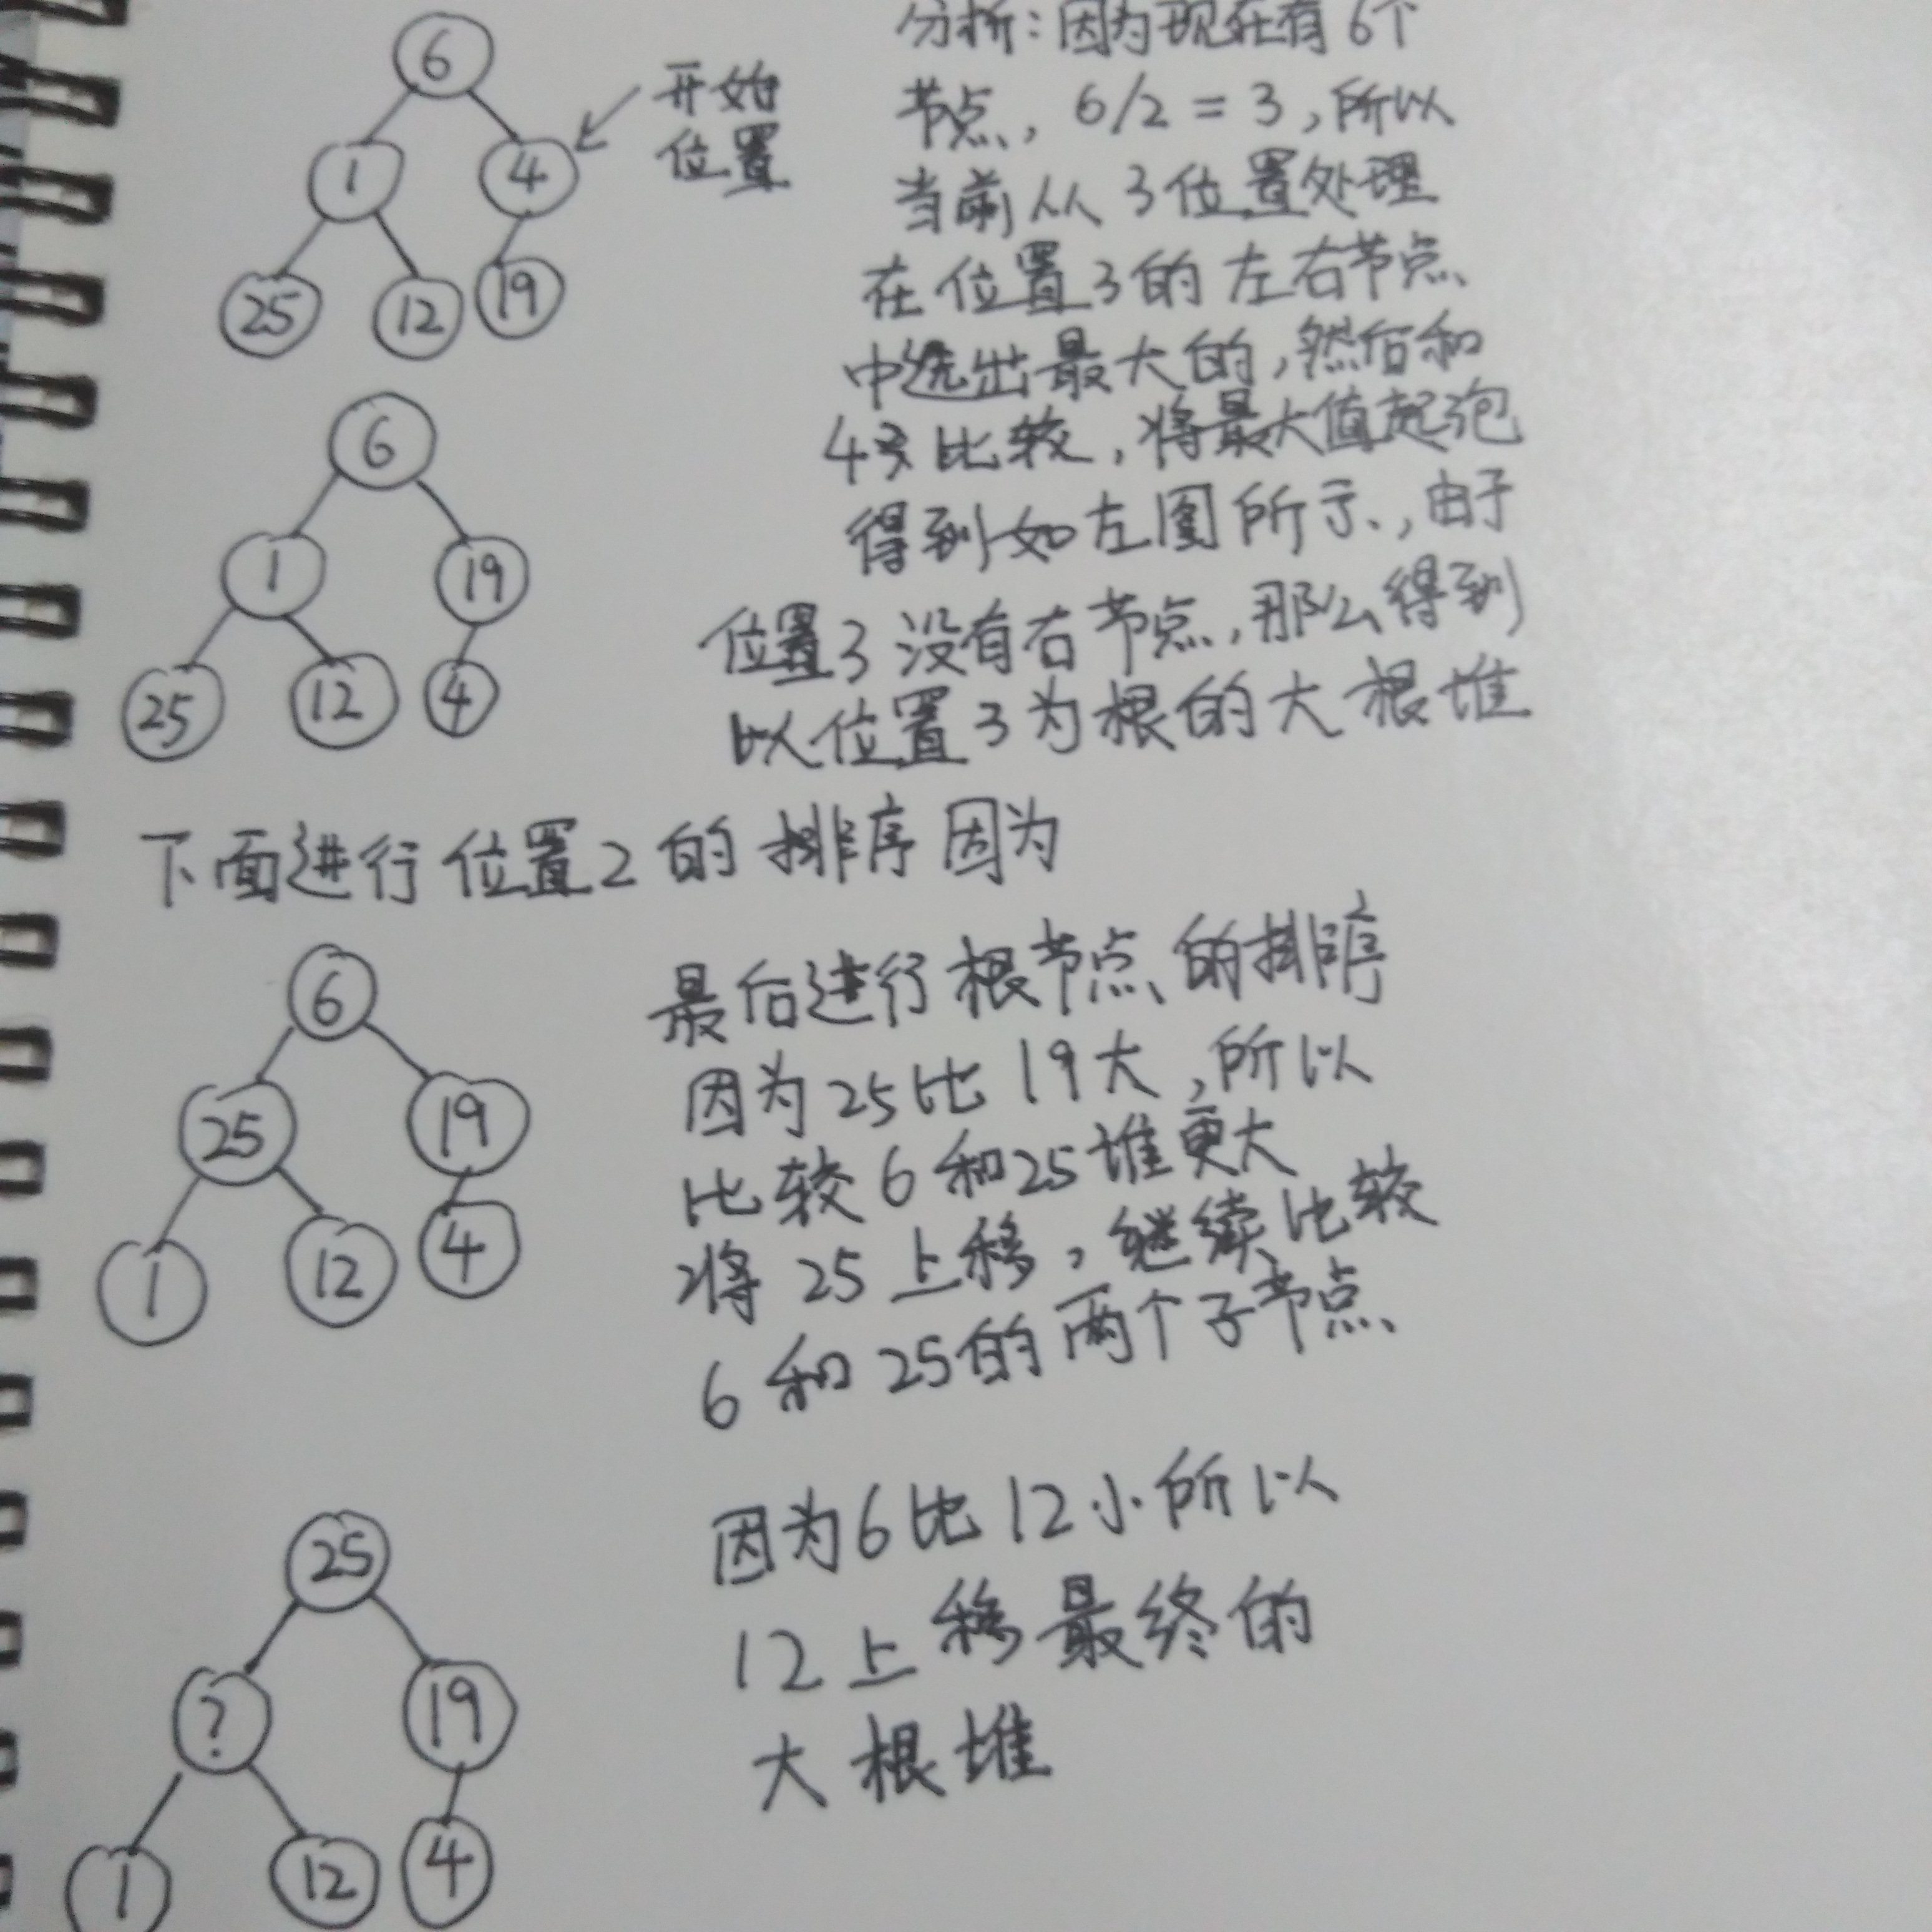 6
1
4
25
12
19
开始
位置
分析：因为现在有6个
节点，6/2=3，所以
当前从3位置处理
在位置3的左右节点
中选出最大的，然后和
4来比较，将最大值起泡
得到如左图所示，由于
位置3没有右节点，那么得到
以位置3为根的大根堆
6
1
19
25
12
4
下面进行位置2的排序因为
6
25
19
1
12
4
最后进行根节点的排序
因为25比19大，所以
比较6和25堆更大
将25上移，继续比较
6和25的两个子节点
25
?
19
1
12
4
因为6比12小所以
12上移最终的
大根堆